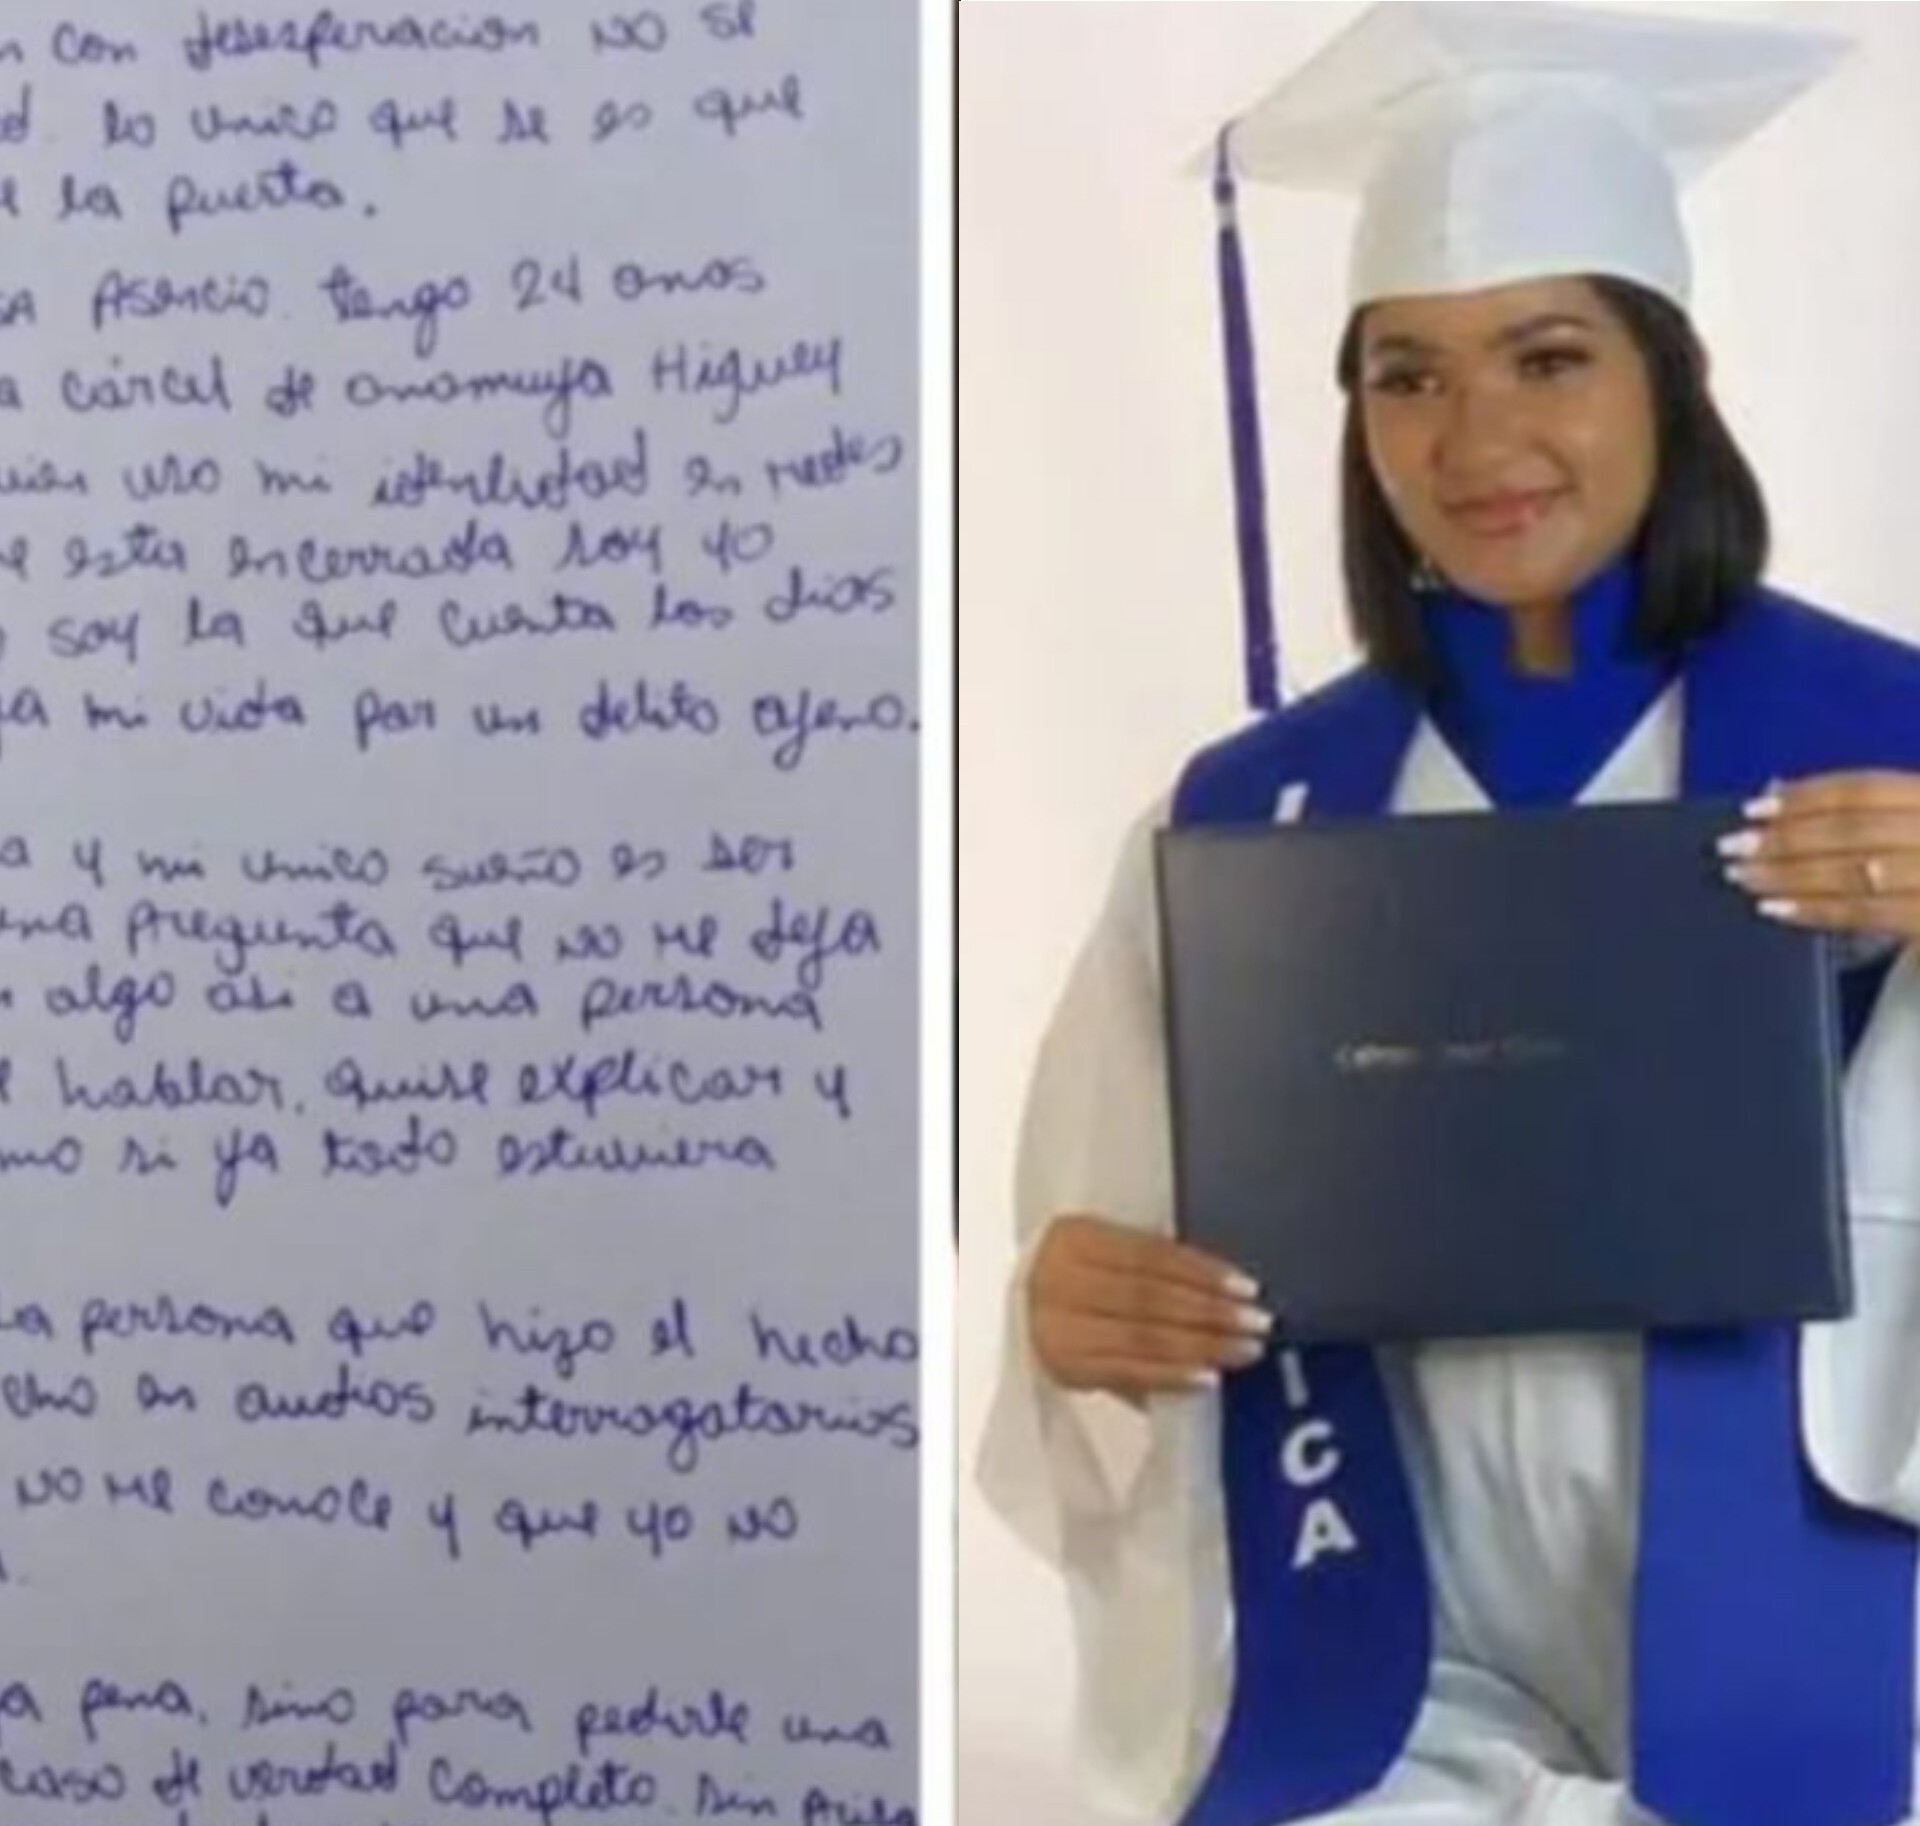 con desesperacion NO se
lo unico que se es que
la puerta.
SA Asencio. tengo 24 anos
a cárcel de anamuya Higuey
uso mi identidad en redes
esta encerrada soy yo
soy la que cuenta los dias
mi vida por un delito ajeno.
a y mi unico sueño es ser
una pregunta que NO me deja
algo asi a una persona
hablar. quise explicar y
si ya todo estuviera
la persona que hizo el hecho
en audios interrogatorios
NO me conoce y que yo NO
pena. sino para pedirle una
caso de verdad completo. sin prisa
I
I
C
A